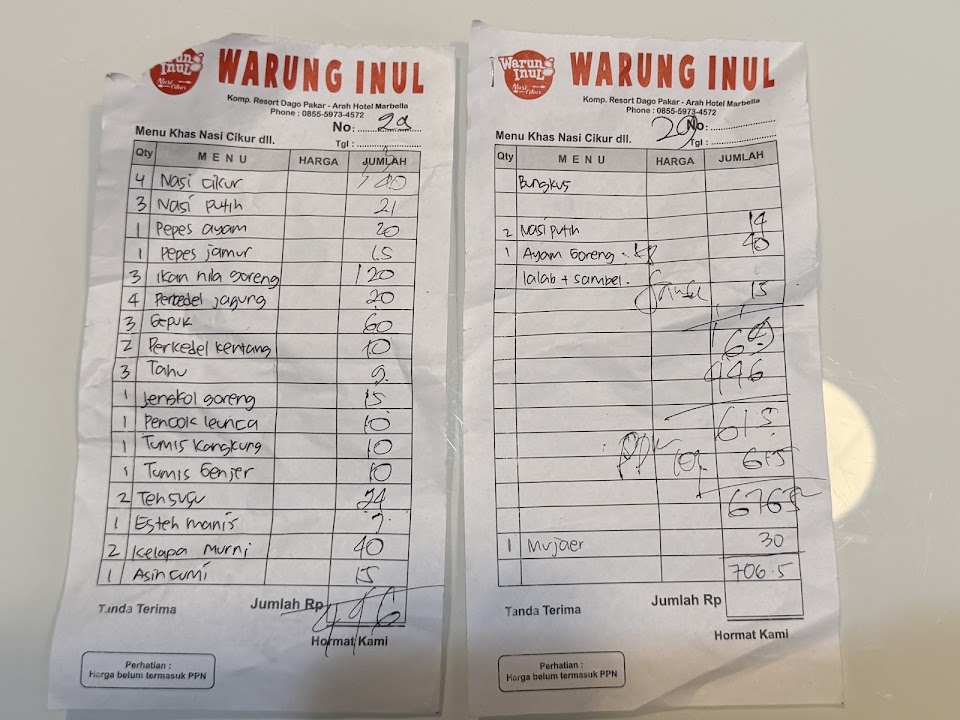 Warung
Inul
Nasi Cikur
WARUNG INUL
Komp. Resort Dago Pakar - Arah Hotel Marbella
Phone : 0855-5973-4572
No: 29
Menu Khas Nasi Cikur dll.
Tgl :
Qty MENU HARGA JUMLAH
4 Nasi cikur 40
3 Nasi putih 21
1 Pepes ayam 20
1 Pepes jamur 15
3 ikan nila goreng 120
4 Perkedel jagung 20
3 Gepuk 60
2 Perkedel kentang 10
3 Tahu 9
1 Jengkol goreng 15
1 Pencok leunca 10
1 Tumis Kangkung 10
1 Tumis Genjer 10
2 Teh susu 24
1 Es teh manis 7
2 Kelapa Murni 40
1 Asin cumi 15
Tanda Terima
Jumlah Rp 446
Hormat Kami
Perhatian :
Harga belum termasuk PPN
Warung
Inul
Nasi Cikur
WARUNG INUL
Komp. Resort Dago Pakar - Arah Hotel Marbella
Phone : 0855-5973-4572
29 No:
Menu Khas Nasi Cikur dll.
Tgl :
Qty MENU HARGA JUMLAH
Bungkus
2 Nasi putih 14
1 Ayam Goreng 40
lalab + sambel.
15
169
446
615
PPN 10% 61.5
676.5
1 Mujaer 30
706.5
Tanda Terima
Jumlah Rp
Hormat Kami
Perhatian :
Harga belum termasuk PPN